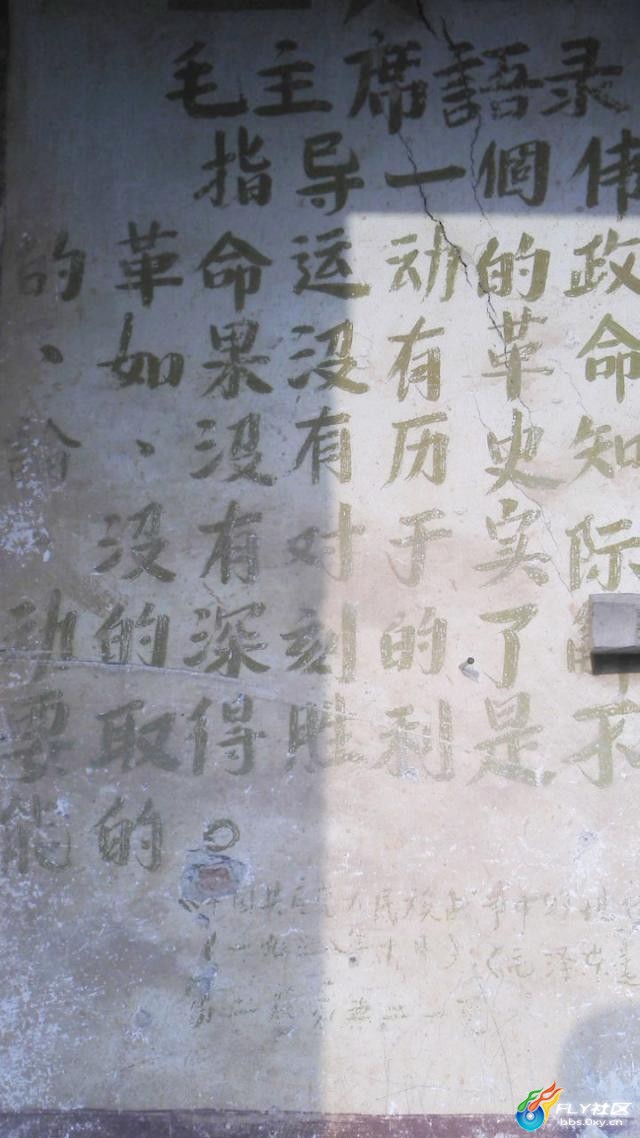 毛主席語录
指导一個伟
的革命运动的政
、如果没有革命
論、没有历史知
没有对于实际
动的深刻的了解
要取得胜利是不
能的。
中国共产党在民族战争中的地
（一九三八年十月）《毛泽东选
第二卷第五二一页
FLY社区
bbs.0xy.cn